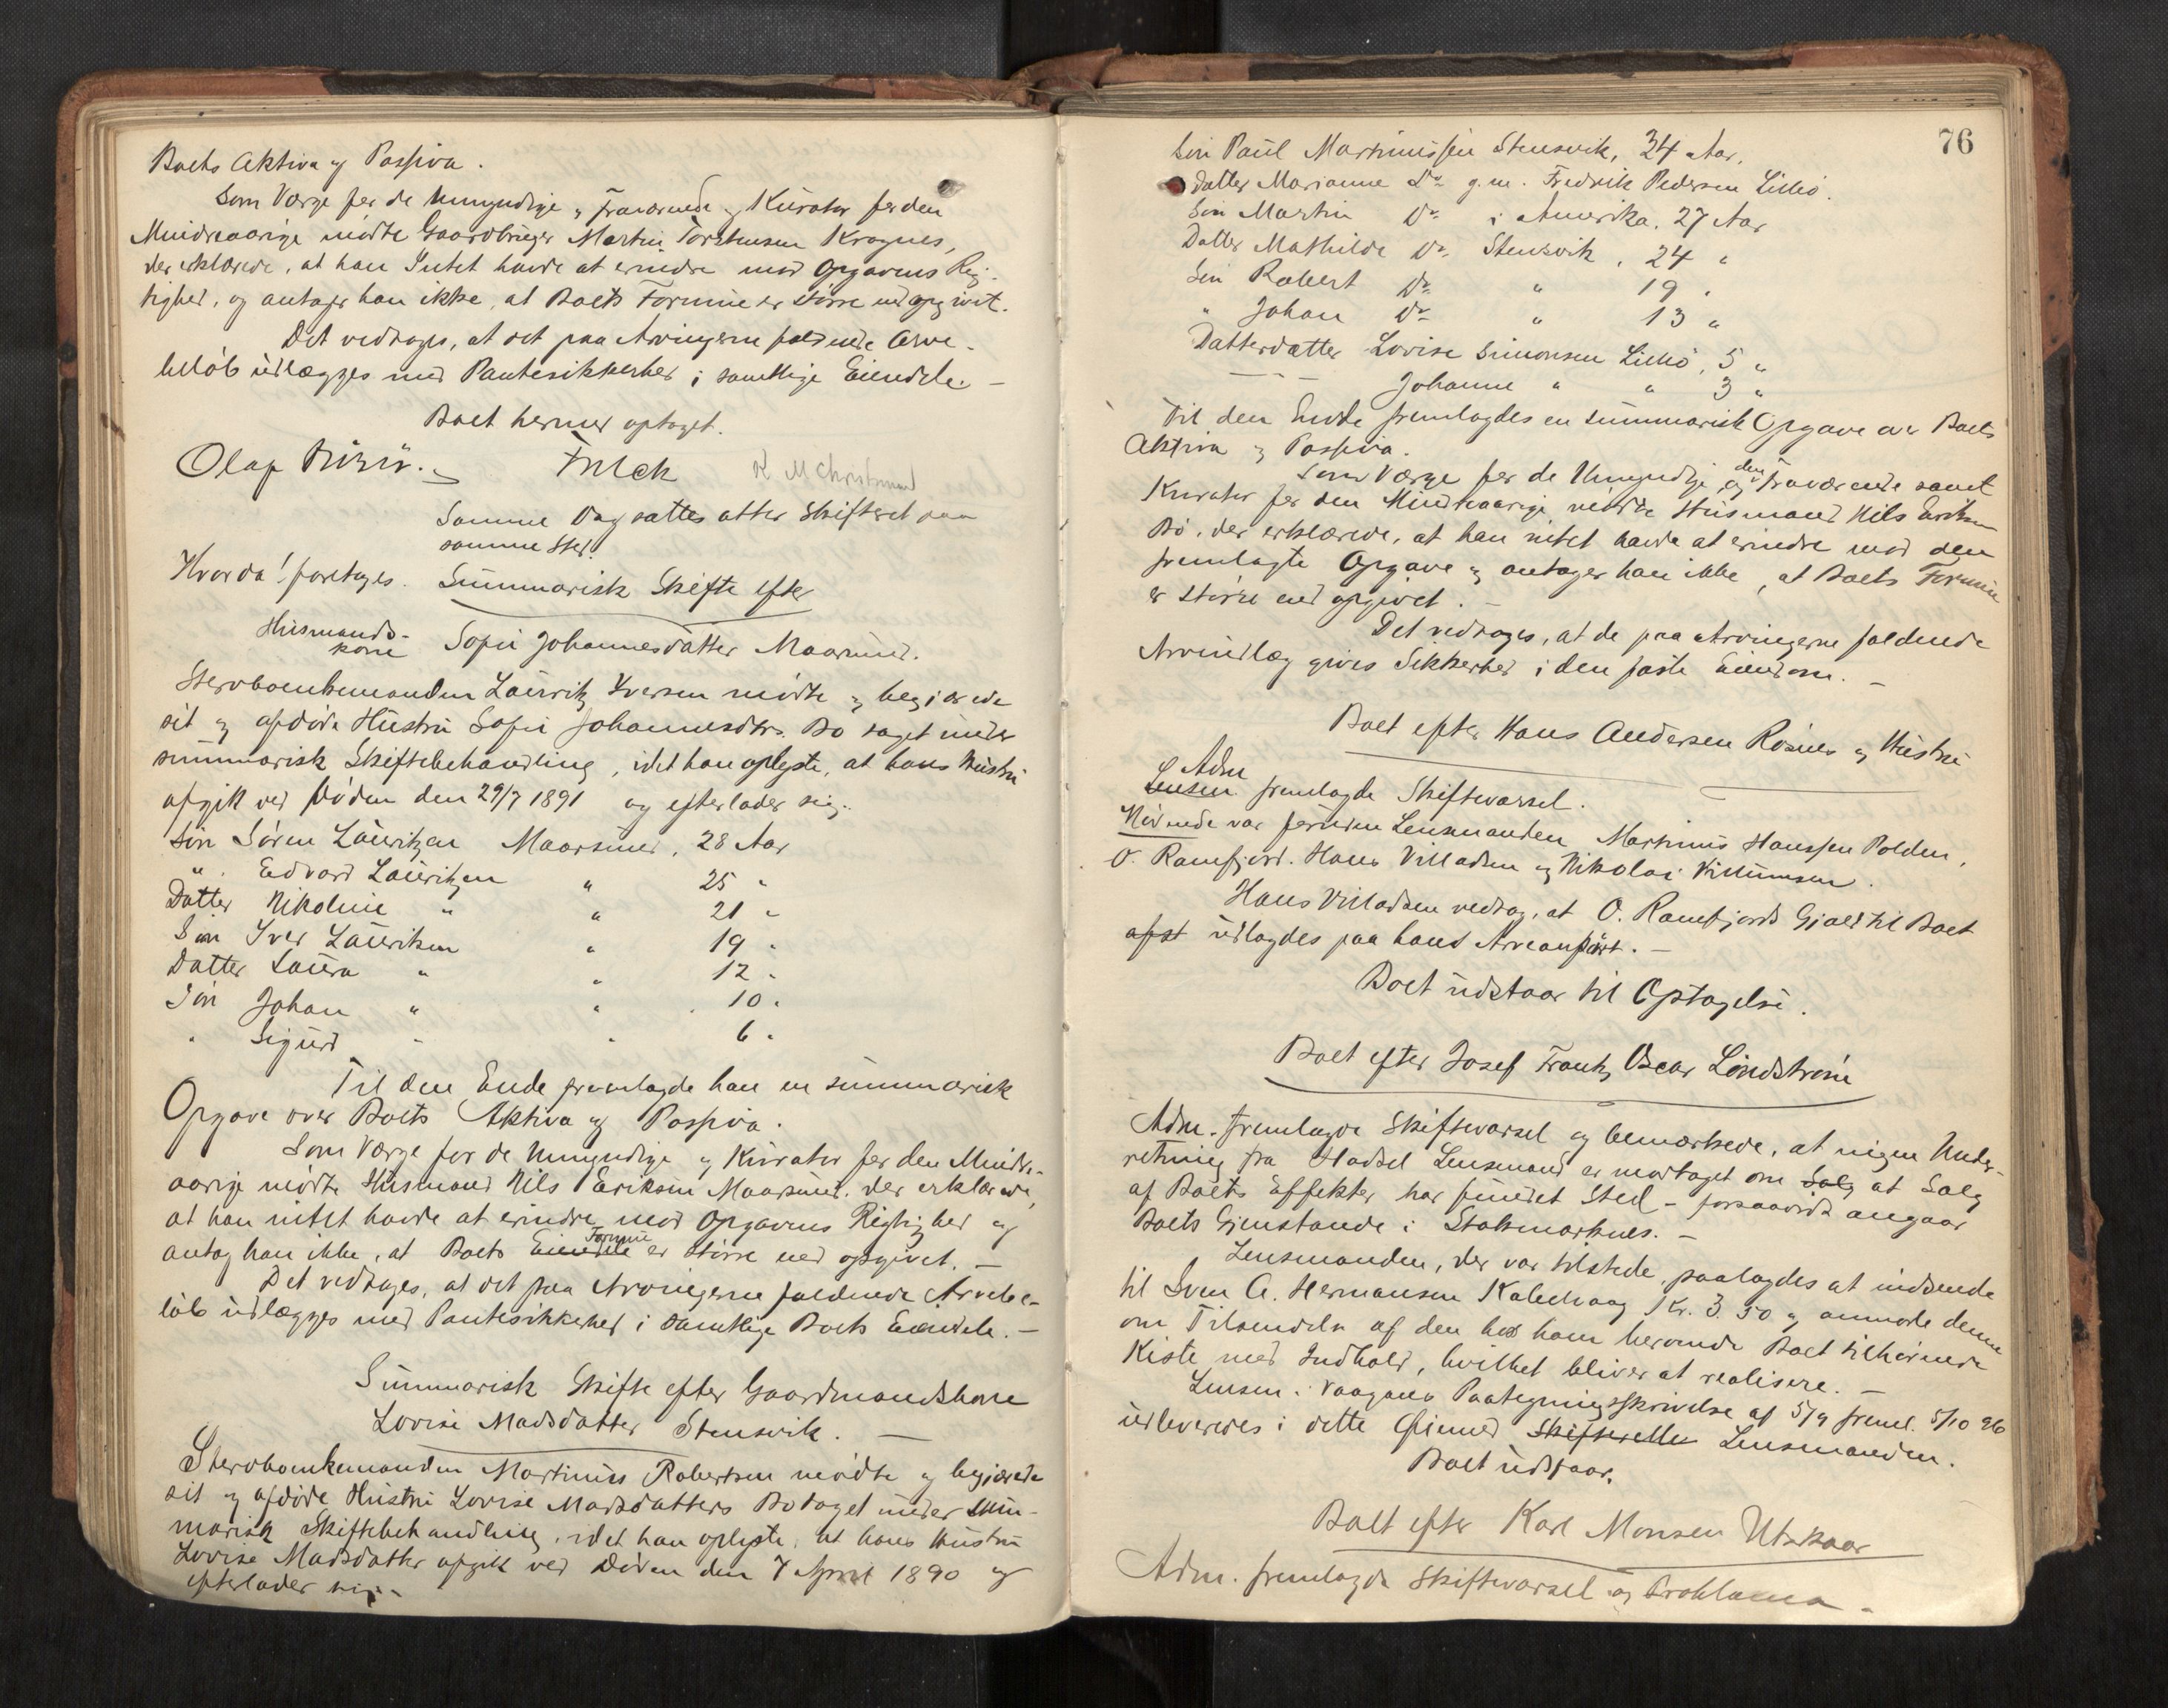 Boets Aktiva og Passiva.
Som Værge for de Umyndige, Fraværende og Kurator for den
Mindreaarige mødte Gaardbruger Martin Torstensen Kragnes,
der erklærede, at han Intet havde at erindre mod Opgavens Rig-
tighed, og antager han ikke, at Boets Formue er større end opgivet.
Det vedtages, at det paa Arvingerne faldende Arve-
beløb udlægges med Pantesikkerhed i samtlige Eiendele. -
Boet hermed optaget.
Olaf Falck
Samme Dag sattes atter Skifteret paa
samme Sted.
Hvorda! foretages. Summarisk Skifte efter
Husmands-
kone Sofie Johannesdatter Maarsund.
Stervboenkemanden Lauritz Iversen mødte og begjærede
sit og afdøde Hustru Sofie Johannesdtrs. Bo taget under
summarisk Skiftebehandling, idet han oplyste, at hans Hustru
afgik ved Døden den 29/7 1891 og efterlader sig:
Søn Søren Lauritzen Maarsund, 28 Aar
" Edvard Lauritzen " 25 "
Datter Nikoline " " 21 "
Søn Iver Lauritsen " 19 "
Datter Laura " " 12 "
Søn Johan " " 10 "
" Sigurd " " 6 "
Til den Ende fremlagde han en summarisk
Opgave over Boets Aktiva og Passiva.
Som Værge for de Umyndige og Kurator for den Mindre-
aarige mødte Husmand Nils Eriksen Maarsund, der erklærede,
at han intet havde at erindre mod Opgavens Rigtighed og
antog han ikke, at Boets Eiendele Formue er større end opgivet. -
Det vedtages, at det paa Arvingerne faldende Arvebe-
løb udlægges med Pantesikkerhed i samtlige Boets Eiendele. -
Summarisk Skifte efter Gaardmandskone
Lovise Madsdatter Stensvik. -
Stervboenkemanden Martinus Robertsen mødte og begjærede
sit og afdøde Hustru Lovise Madsdatters Bo taget under sum-
marisk Skiftebehandling, idet han oplyste, at hans Hustru
Lovise Madsdatter afgik ved Døden den 7 April 1890 og
efterlader sig:
76
Søn Paul Martinussen Stensvik, 34 Aar.
Datter Marianne Do g.m. Fredrik Pedersen Lillø.
Søn Martin Do i Amerika, 27 Aar
Datter Mathilde Do Stensvik, 24 "
Søn Robert Do " 19 "
" Johan Do " 13 "
Datterdatter Lovise Simonsen Lillø, 5 "
— — Johanne " " 3 "
Til den Ende fremlagdes en summarisk Opgave over Boets
Aktiva og Passiva.
Som Værge for de Umyndige og den Fraværende samt
Kurator for den Mindreaarige mødte Husmand Nils Eriksen
Bø, der erklærede, at han intet havde at erindre mod den
fremlagte Opgave og antager han ikke, at Boets Formue
er større end opgivet. -
Det vedtages, at de paa Arvingerne faldende
Arveudlæg gives Sikkerhed i den faste Eiendom. -
Boet efter Hans Andersen Røsnes og Hustru
Adm
Lensm. fremlagde Skiftevarsel.
Mødende var foruden Lensmanden Martinus Hanssen Polden,
O. Ramfjord. Hans Villadsen og Nikolai Villumsen.
Hans Villadsen vedtog, at O. Ramfjords Gjæld til Boet
afst udlagdes paa hans Arveanpart. -
Boet udstaar til Optagelse.
Boet efter Josef Frantz Oscar Lindstrøm
Adm. fremlagde Skiftevarsel og bemærkede, at ingen Under-
retning fra Hadsel Lensmand er modtaget om Salg at Salg
af Boets Effekter har fundet Sted - forsaavidt angaar
Boets Gjenstande i Stokmarknes. -
Lensmanden, der var tilstede, paalagdes at indsende
til Sven A. Hermansen Kabelvaag Kr. 3.50 og anmode denne
om Tilsendelse af den hos ham beroende Boet tilhørende
Kiste med Indhold, hvilket bliver at realisere. -
Lensm. i Vaagans Paategningsskrivelse af 5/9 freml. 5/10 96
udleveredes i dette Øiemed Skifteretten Lensmanden.
Boet udstaar.
Boet efter Karl Monsen Utskaar
Adm. fremlagde Skiftevarsel og Proklama -